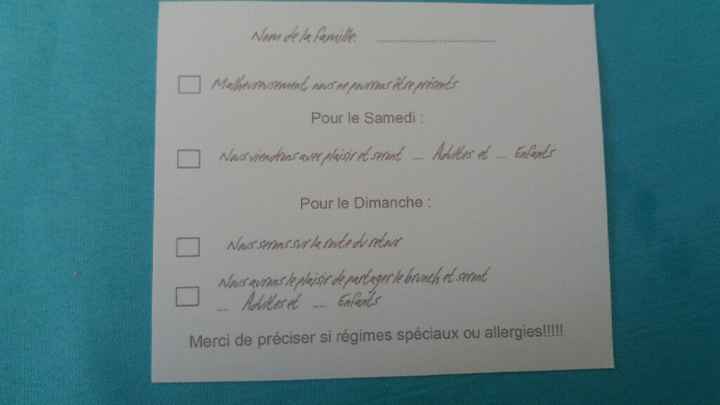 Nom de la famille: ....................
Malheureusement, nous ne pourrons être présents
Pour le Samedi :
Nous viendrons avec plaisir et seront ... Adultes et ... Enfants
Pour le Dimanche :
Nous serons sur la route du retour
Nous aurons le plaisir de partager le brunch et seront
... Adultes et ... Enfants
Merci de préciser si régimes spéciaux ou allergies!!!!!